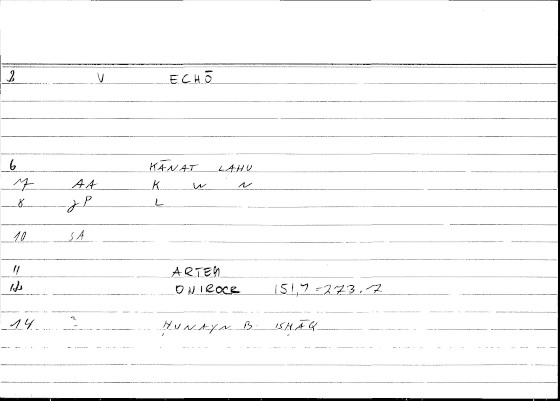 2 V ECHŌ
6 KĀNAT LAHU
7 AA K W N
8 gP L
10 SA
11 ARTEM
12 ONIROCR 151,7=273.7
14 ? ḤUNAYN B ISḤĀQ